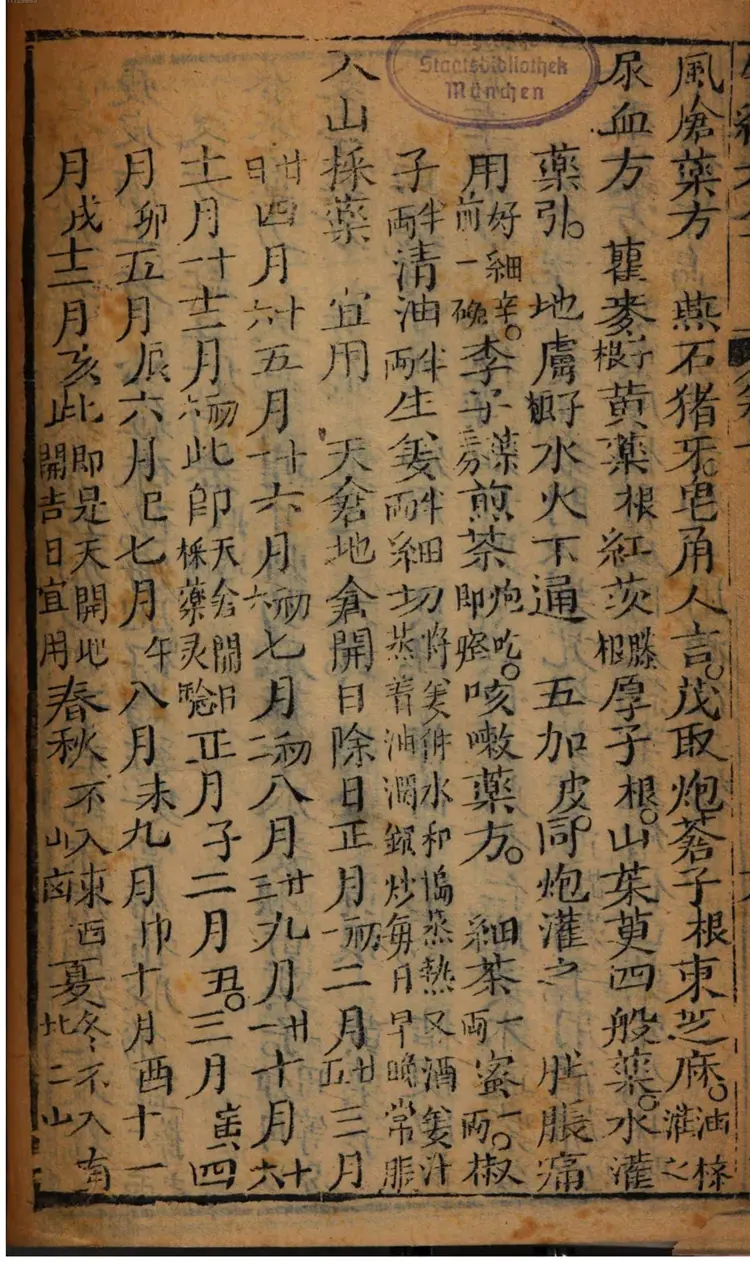 Staatsbibliothek
München
風瘡藥方 燕石猪牙皂角人言。茂取炮蒼子根東芝麻。油搽灌之
尿血方 藋麥籽根黃藥根紅茨籐根厚子根。山茱萸四般藥。水灌
藥引。 地膚籽根水火下通 五加皮。同炮灌之 肚脹痛
用好細辛。前一碗李子藥煎茶炮吃。即痊咳嗽藥方。 細茶一両蜜一両。椒
子半両清油半両生姜半両細切将姜併水和搗蒸熱又酒姜汁蒸着油潤鎮炒每日早晚常服
入山採藥 宜用 天倉地倉開日除日正月初一二月廿五三月
廿日四月十六五月十一六月初六七月初二八月廿三九月廿一十月十六
十一月十十二月初六此即天倉開日採藥灵驗正月子二月丑。三月寅四
月卯五月辰六月巳七月午八月未九月申十月酉十一
月戌十二月亥此即是天開地開吉日宜用春秋不入東西山凶夏冬不入南北二山